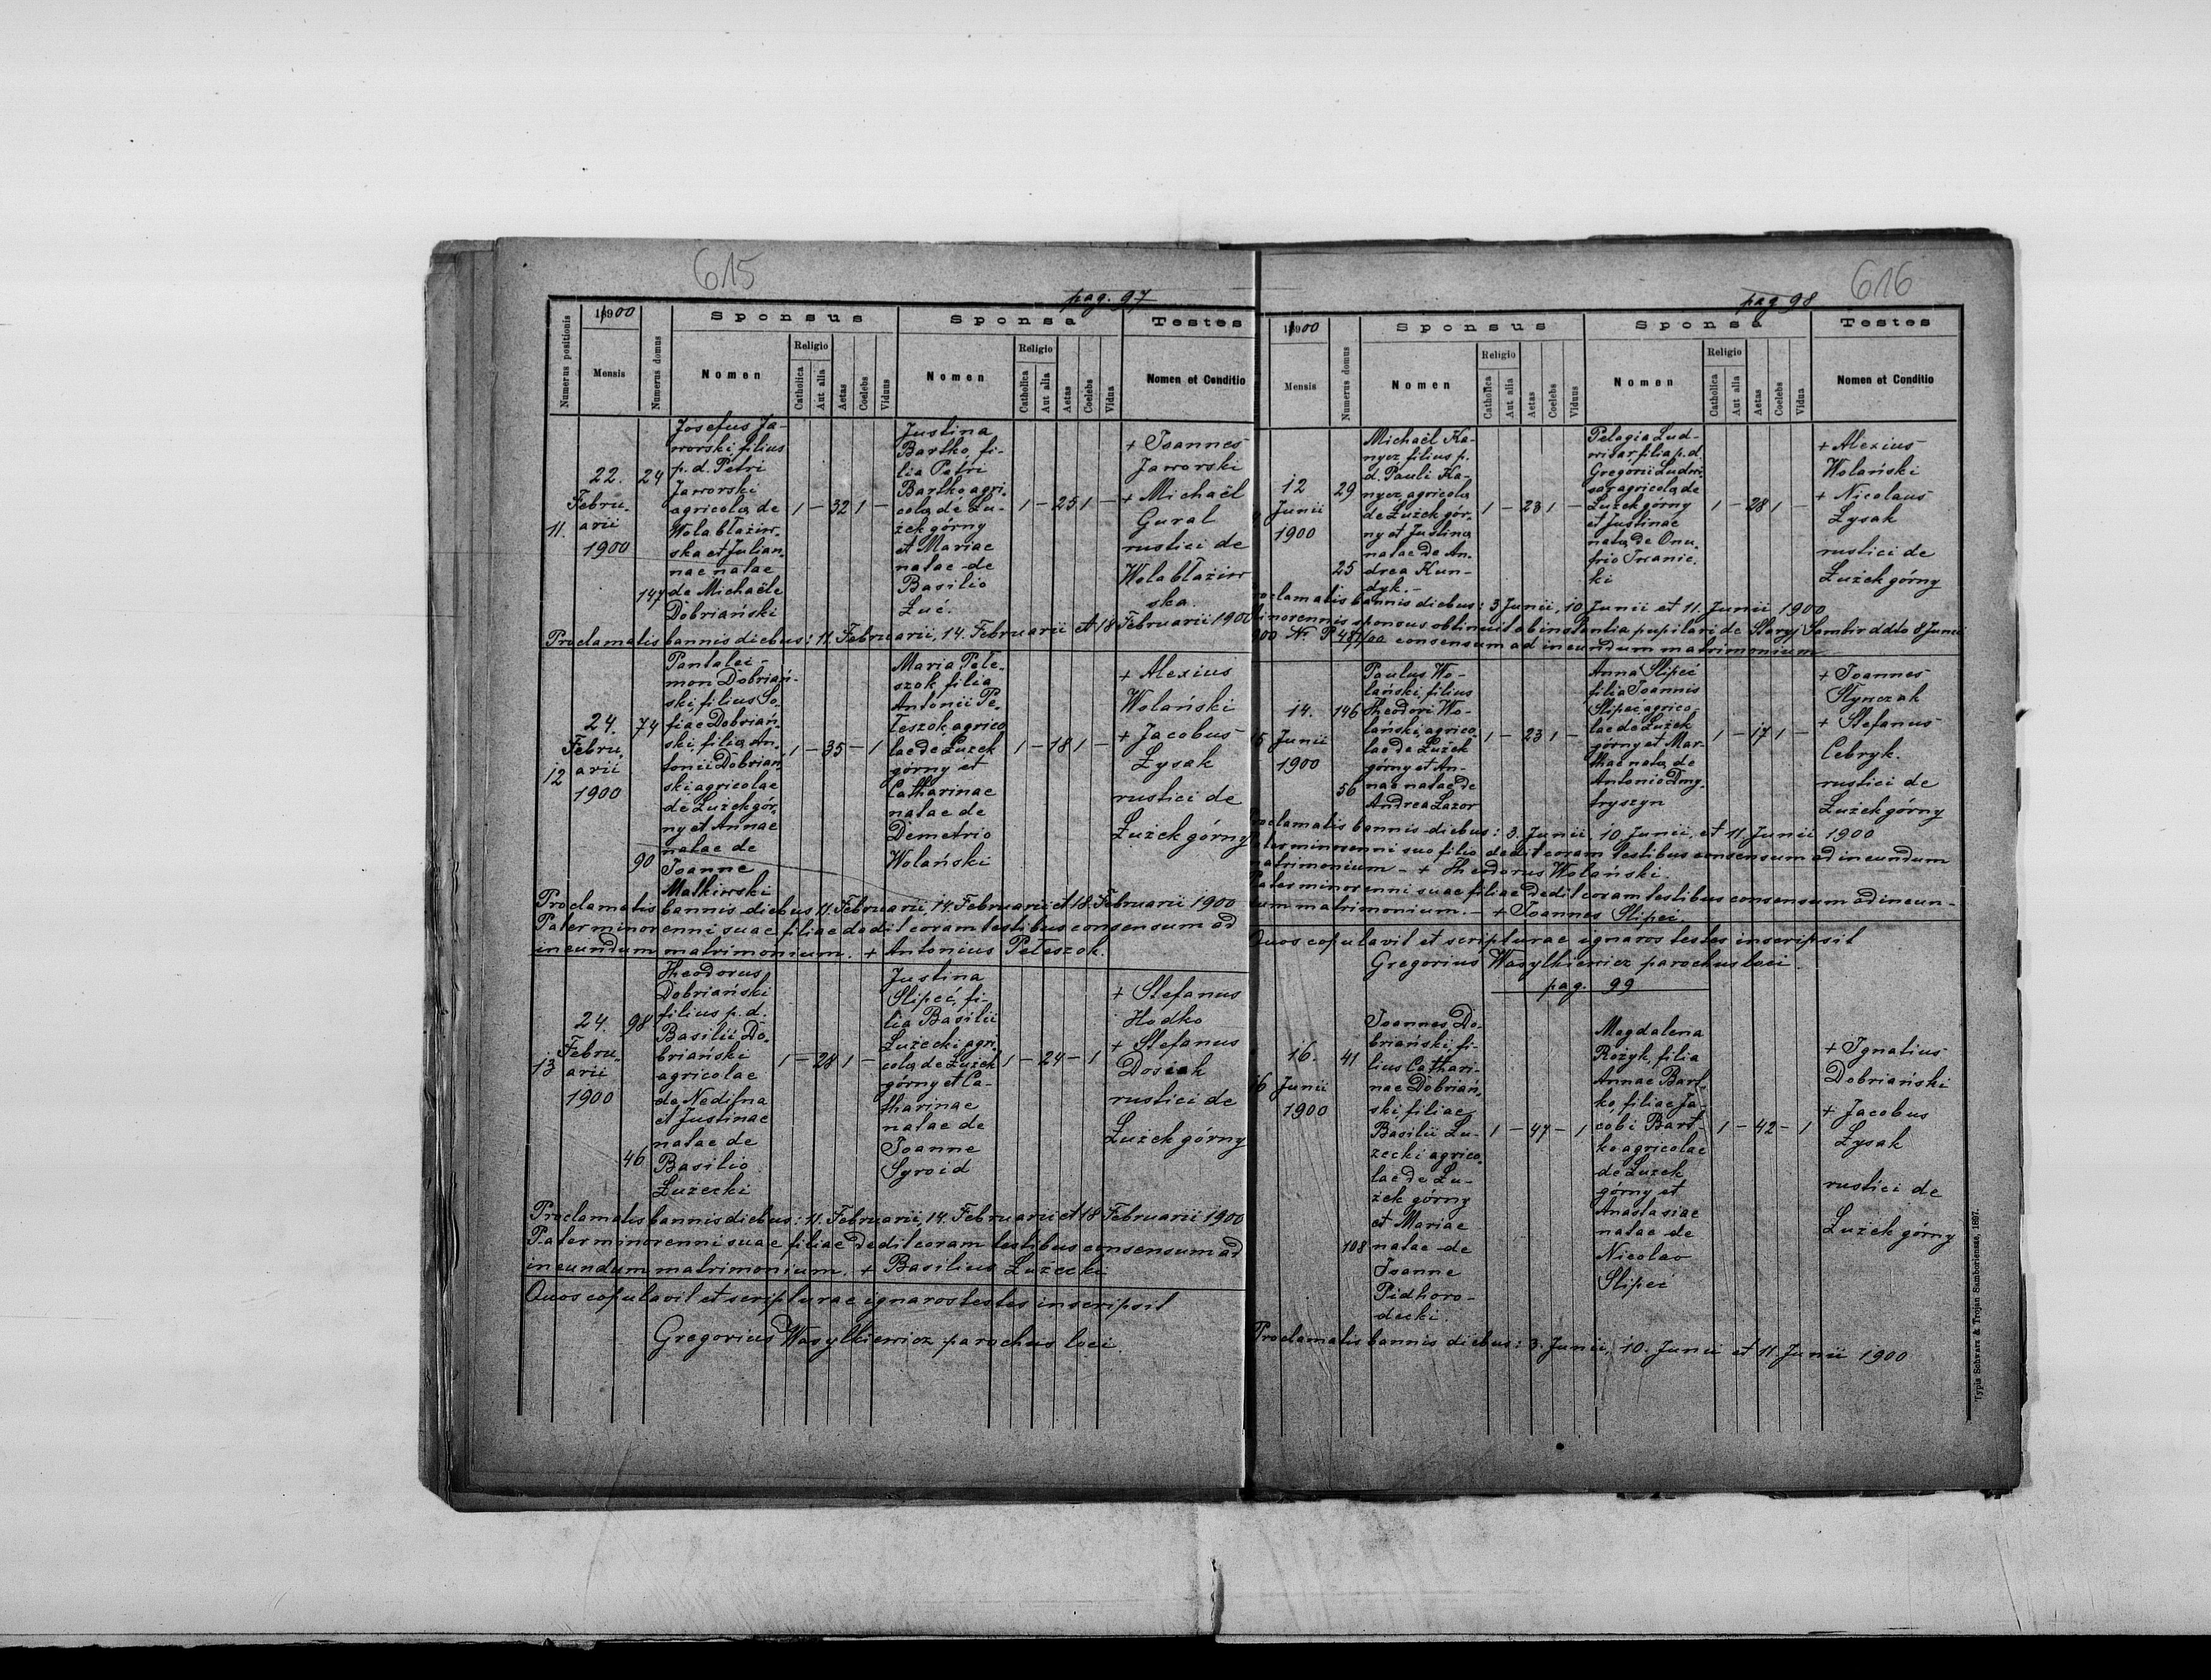 615
pag. 97
Numerus positionis
1900
Mensis
Numerus domus
Sponsus
Nomen
Religio
Catholica
Aut alia
Aetas
Coelebs
Viduus
Sponsa
Nomen
Religio
Catholica
Aut alia
Aetas
Coelebs
Vidua
Testes
Nomen et Conditio
11.
22.
Febru-
arii
1900
24
147
Josefus Ja-
worski filius
p. d. Petri
Jaworski
agricola de
Wola błażiw-
ska et Julian-
nae natae
de Michaële
Dobriański
1 – 32 1 –
Justina
Bartko, fi-
lia Petri
Bartko agri-
cola de Łu-
żek górny
et Mariae
natae de
Basilio
Łuć.
1 – 25 1 –
+ Joannes
Jaworski
+ Michaël
Gural
rustici de
Wola błażiw
ska
Proclamatis bannis diebus: 11. Februarii, 14. Februarii et 18 Februarii 1900
12
24.
Febru-
arii
1900
74
90
Pantalei-
mon Dobriań-
ski, filius So-
fiae Dobriań-
ski, filia An-
tonii Dobrian
ski agricolae
de Łużek gór-
ny et Annae
natae de
Joanne
Matkiwski
1 – 35 – 1
Maria Pete-
szok filia
Antonii Pe-
teszok agrico
lae de Łużek
górny et
Catharinae
natae de
Demetrio
Wolański
1 – 18 1 –
+ Alexius
Wolański
+ Jacobus
Łysak
rustici de
Łużek górny
Proclamatis bannis diebus 11. Februarii, 14. Februarii et 18. Februarii 1900
Pater minorenni suae filiae dedit coram testibus consensum ad
ineundum matrimonium. + Antonius Peteszok.
13
24.
Febru-
arii
1900
98
46
Theodorus
Dobriański
filius p. d.
Basilii Do-
briański
agricolae
de Nedilna
et Justinae
natae de
Basilio
Łużecki
1 – 28 1 –
Justina
Slipeć, fi-
lia Basilii
Łużecki agri-
cola de Łużek
górny et Ca-
tharinae
natae de
Joanne
Syroid
1 – 24 – 1
+ Stefanus
Hodko
+ Stefanus
Dosiak
rustici de
Łużek górny
Proclamatis bannis diebus: 11. Februarii, 14. Februarii et 18 Februarii 1900
Pater minorenni suae filiae dedit coram testibus consensum ad
ineundum matrimonium. + Basilius Łużecki
Quos copulavit et scripturae ignaros testes inscripsit
Gregorius Wasylkiewicz parochus loci.
616
pag 98
1900
Mensis
Numerus domus
Sponsus
Nomen
Religio
Catholica
Aut alia
Aetas
Coelebs
Viduus
Sponsa
Nomen
Religio
Catholica
Aut alia
Aetas
Coelebs
Vidua
Testes
Nomen et Conditio
12
Junii
1900
29
25
Michaël Ka-
nycz filius p.
d. Pauli Ka-
nycz agricola
de Łużek gór-
ny et Justina
natae de An-
drea Kun-
dyk.
1 – 23 1 –
Pelagia Lud-
wisar, filia p. d.
Gregorii Ludwi-
sar agricola de
Łużek górny
et Justinae
nata de Onu-
frio Iwanic-
ki
1 – 28 1 –
+ Alexius
Wolański
+ Nicolaus
Łysak
rustici de
Łużek górny
oclamatis bannis diebus: 3 Junii, 10 Junii et 11. Junii 1900
inorennis sponsus obtinuit ab instantia pupilari de Staryj Sambir ddto 8 Junii
900 Nr P 487/00 consensum ad ineundum matrimonium
14.
5 Junii
1900
146
56
Paulus Wo-
lański, filius
Theodori Wo-
lański, agrico-
lae de Łużek
górny et An-
nae natae de
Andrea Lazor
1 – 23 1 –
Anna Slipeć
filia Joannis
Slipeć agrico-
lae de Łużek
górny et Mar-
thae nata de
Antonio Dmy-
tryszyn
1 – 17 1 –
+ Joannes
Stynczak
+ Stefanus
Cebryk.
rustici de
Łużek górny
oclamatis bannis diebus: 3. Junii, 10. Junii, et 11. Junii 1900
ater minorenni suo filio dedit coram testibus consensum ad ineundum
matrimonium – + Theodorus Wolański.
Pater minorenni suae filiae dedit coram testibus consensum ad ineun-
dum matrimonium. – + Joannes Slipeć.
Quos copulavit et scripturae ignaros testes inscripsit
Gregorius Wasylkiewicz parochus loci.
pag. 99
16.
6 Junii
1900
41
108
Joannes Do-
briański, fi-
lius Cathari-
nae Dobriań-
ski, filiae
Basilii Łu-
żecki agrico-
lae de Łu-
żek górny
et Mariae
natae de
Joanne
Pidhoro-
decki.
1 – 47 – 1
Magdalena
Rożyk, filia
Annae Bart-
ko, filiae Ja-
cobi Bart-
ko agricolae
de Łużek
górny et
Anastasiae
natae de
Nicolao
Slipeć
1 – 42 – 1
+ Ignatius
Dobriański
+ Jacobus
Łysak
rustici de
Łużek górny
Proclamatis bannis diebus: 3. Junii, 10. Junii et 11. Junii 1900
Typis Schwarz & Trojan Samboriensae, 1897.